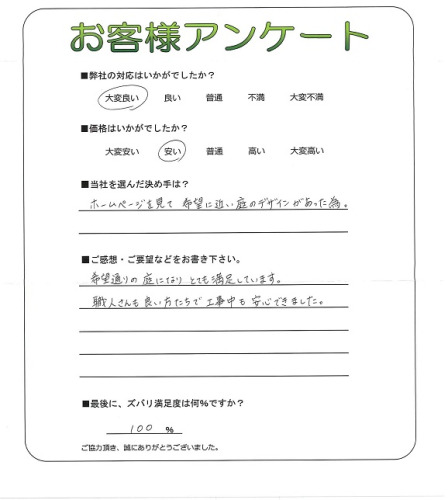 お客様アンケート
■弊社の対応はいかがでしたか?
大変良い 良い 普通 不満 大変不満
■価格はいかがでしたか?
大変安い 安い 普通 高い 大変高い
■当社を選んだ決め手は?
ホームページを見て 希望に近い庭のデザインがあった為。
■ご感想・ご要望などをお書き下さい。
希望通りの庭になり とても満足しています。
職人さんも良い方たちで工事中も安心できました。
■最後に、ズバリ満足度は何%ですか?
100 %
ご協力頂き、誠にありがとうございました。